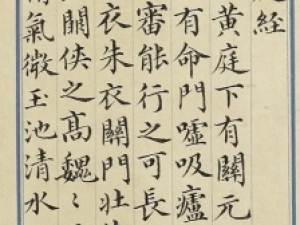 經
黃庭下有關元
有命門噓吸廬
審能行之可長
衣朱衣關門壯
關俠之高巍〻
氣微玉池清水